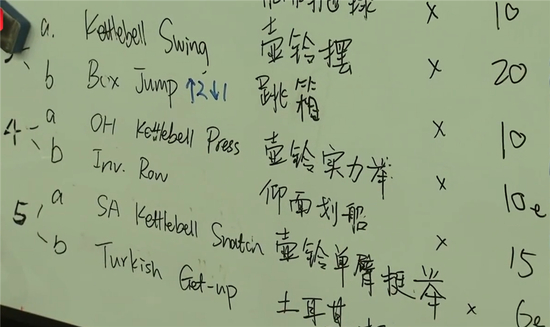 a. Kettlebell Swing 壶铃摆 × 10
b Box Jump ↑2↓1 跳箱 × 20
4 a OH Kettlebell Press 壶铃实力举 × 10
b Inv. Row 仰面划船 × 10e
5 a SA Kettlebell Snatch 壶铃单臂挺举 × 15
b Turkish Get-up 土耳其 × 6e